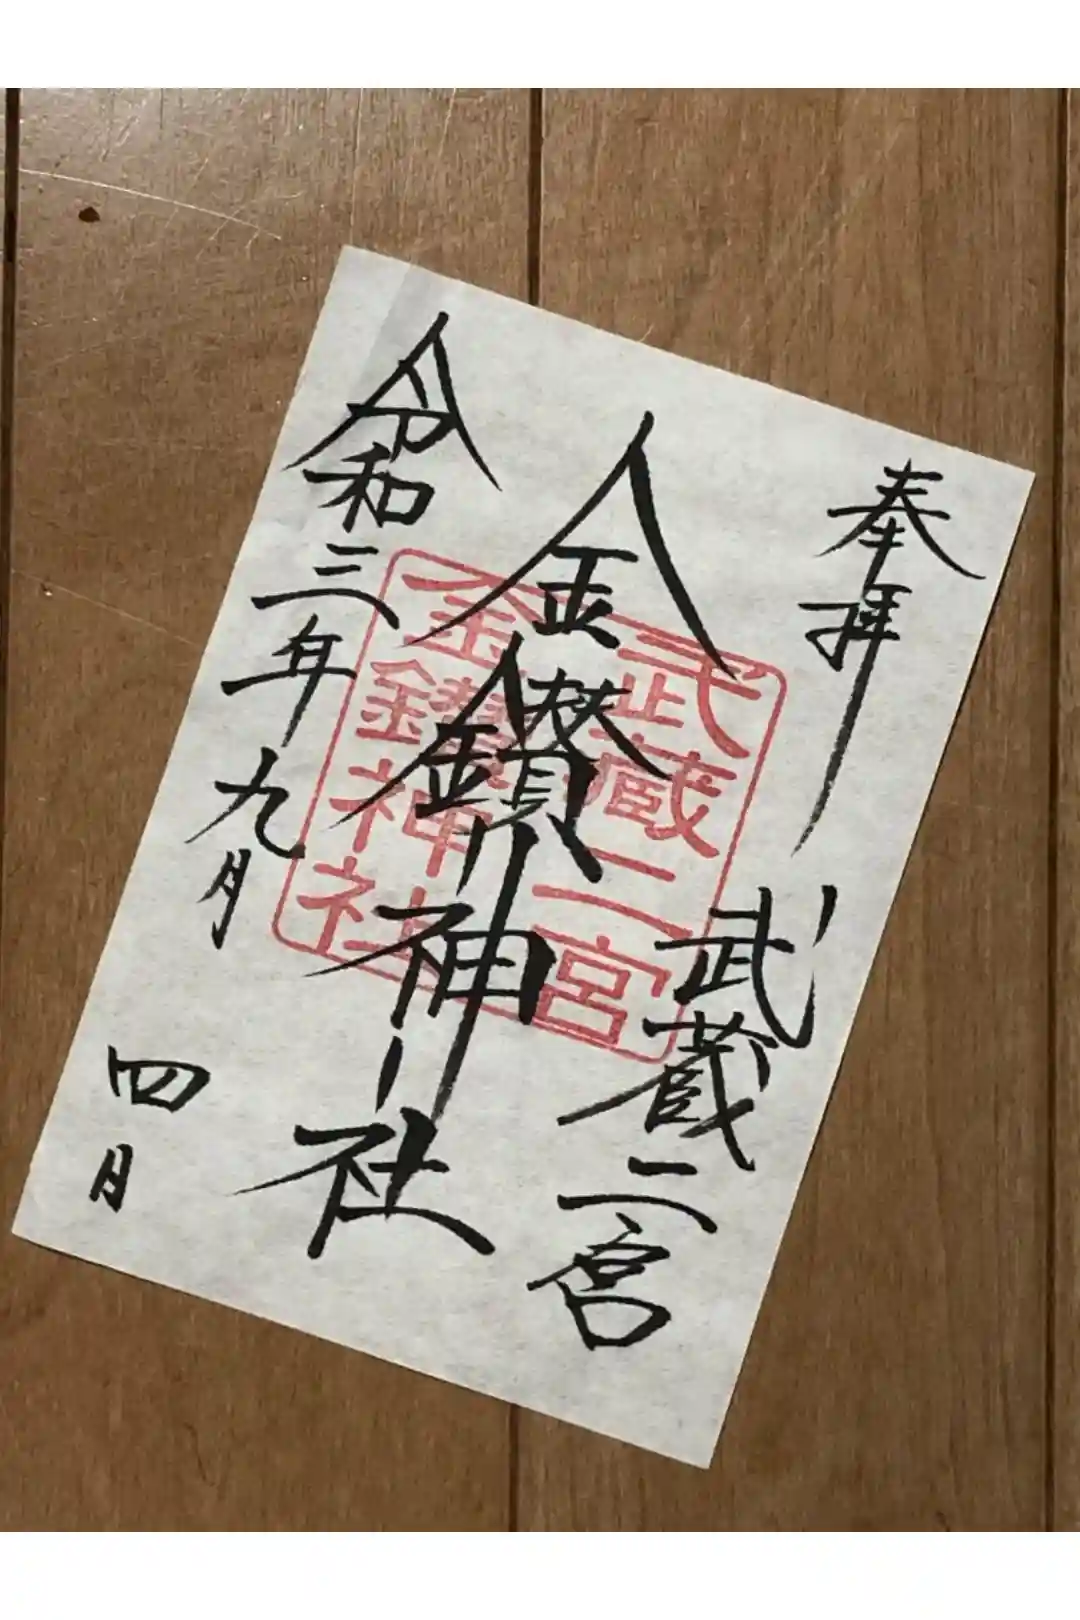 奉拝
武蔵二宮
金鑚神社
令和三年九月
四月
武蔵二宮
金鑚神社